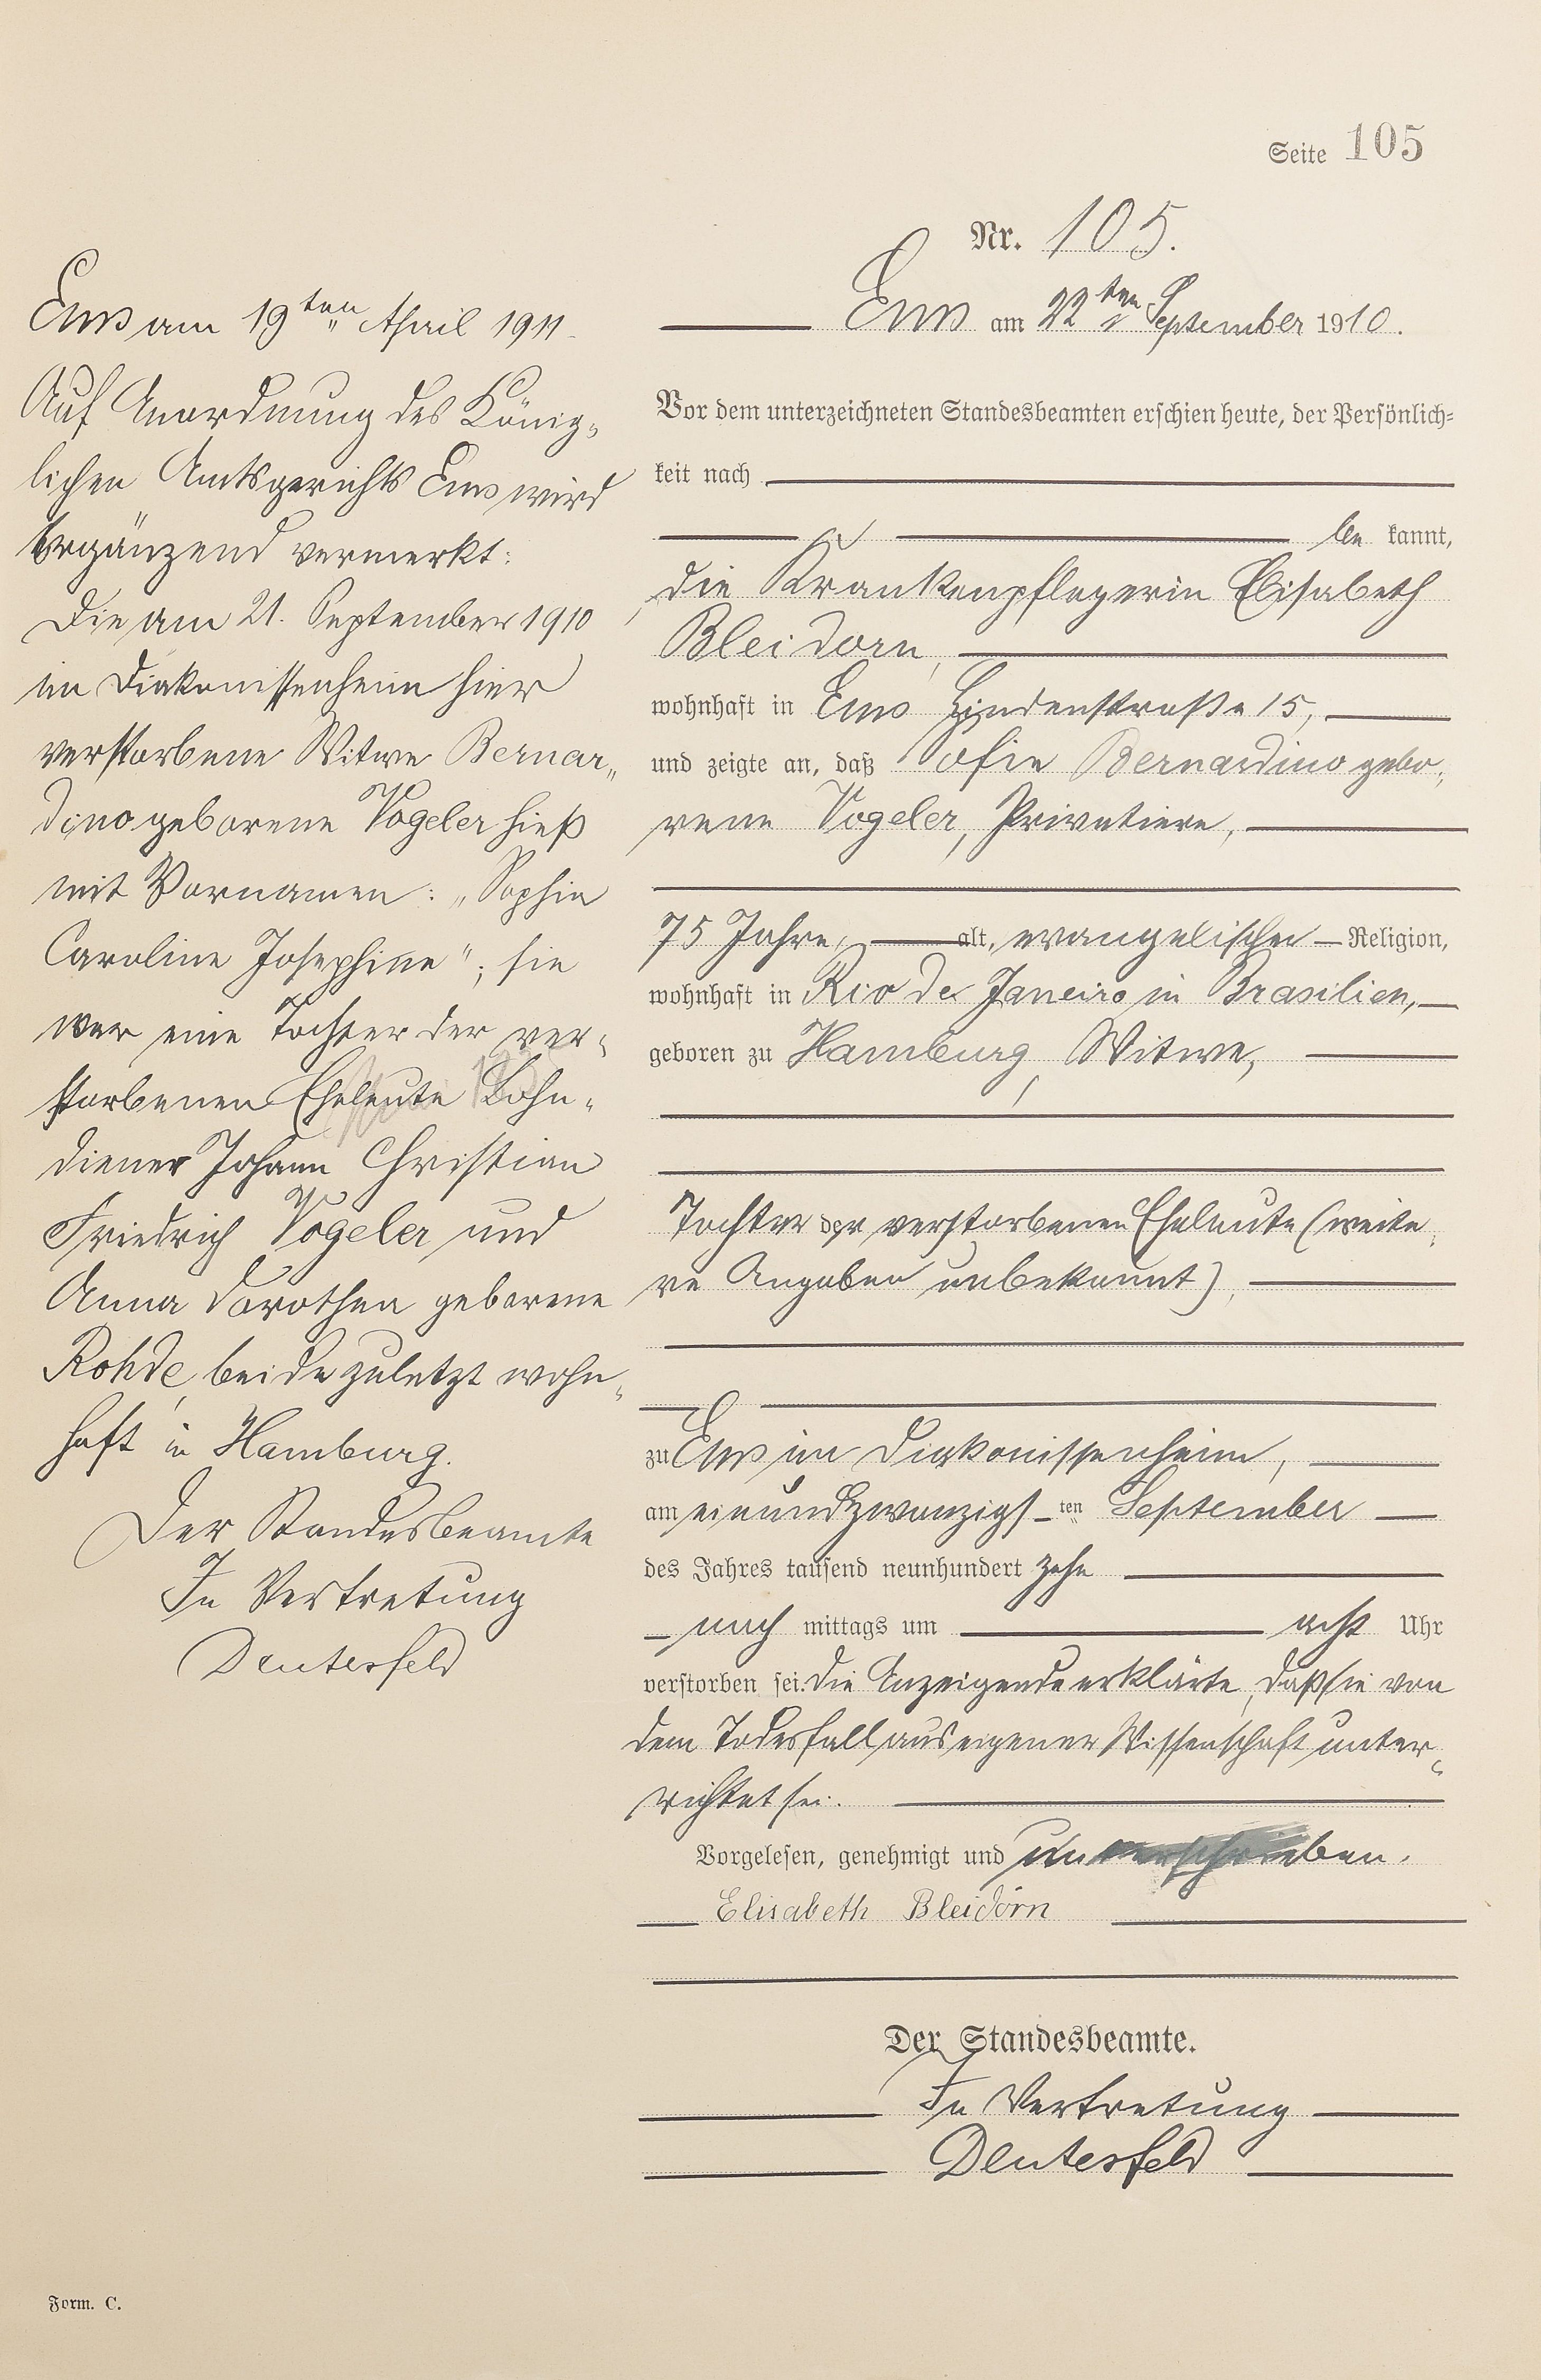 Seite 105
Nr. 105.
Ems am 22ten September 1910.
Vor dem unterzeichneten Standesbeamten erschien heute, der Persönlich-
keit nach
be kannt,
die Krankenpflegerin Elisabeth
Bleidorn,
wohnhaft in Ems Lindenstraße 15,
und zeigte an, daß Sofie Bernardino gebo-
rene Vogeler, Privatiere,
75 Jahre, alt, evangelischer Religion,
wohnhaft in Rio de Janeiro in Brasilien,
geboren zu Hamburg, Witwe,
Tochter der verstorbenen Eheleute (weite-
re Angaben unbekannt),
zu Ems im Diakonissenheim,
am einundzwanzigsten September
des Jahres tausend neunhundert zehn
nach mittags um acht Uhr
verstorben sei. Die Anzeigende erklärte, daß sie von
dem Todesfall aus eigener Wissenschaft unter-
richtet sei.
Vorgelesen, genehmigt und unterschrieben.
Elisabeth Bleidorn
Der Standesbeamte.
In Vertretung
Deutesfeld
Ems am 19ten April 1911.
Auf Anordnung des König-
lichen Amtsgerichts Ems wird
ergänzend vermerkt:
Die am 21. September 1910
im Diakonissenheim hier
verstorbene Witwe Bernar-
dino geborene Vogeler hieß
mit Vornamen: „Sophie
Caroline Josephine"; sie
war eine Tochter der ver-
storbenen Eheleute Lohn-
diener Johann Christian
Friedrich Vogeler und
Anna Dorothea geborene
Rohde, beide zuletzt wohn-
haft in Hamburg.
Der Standesbeamte
In Vertretung
Deutesfeld
Form. C.